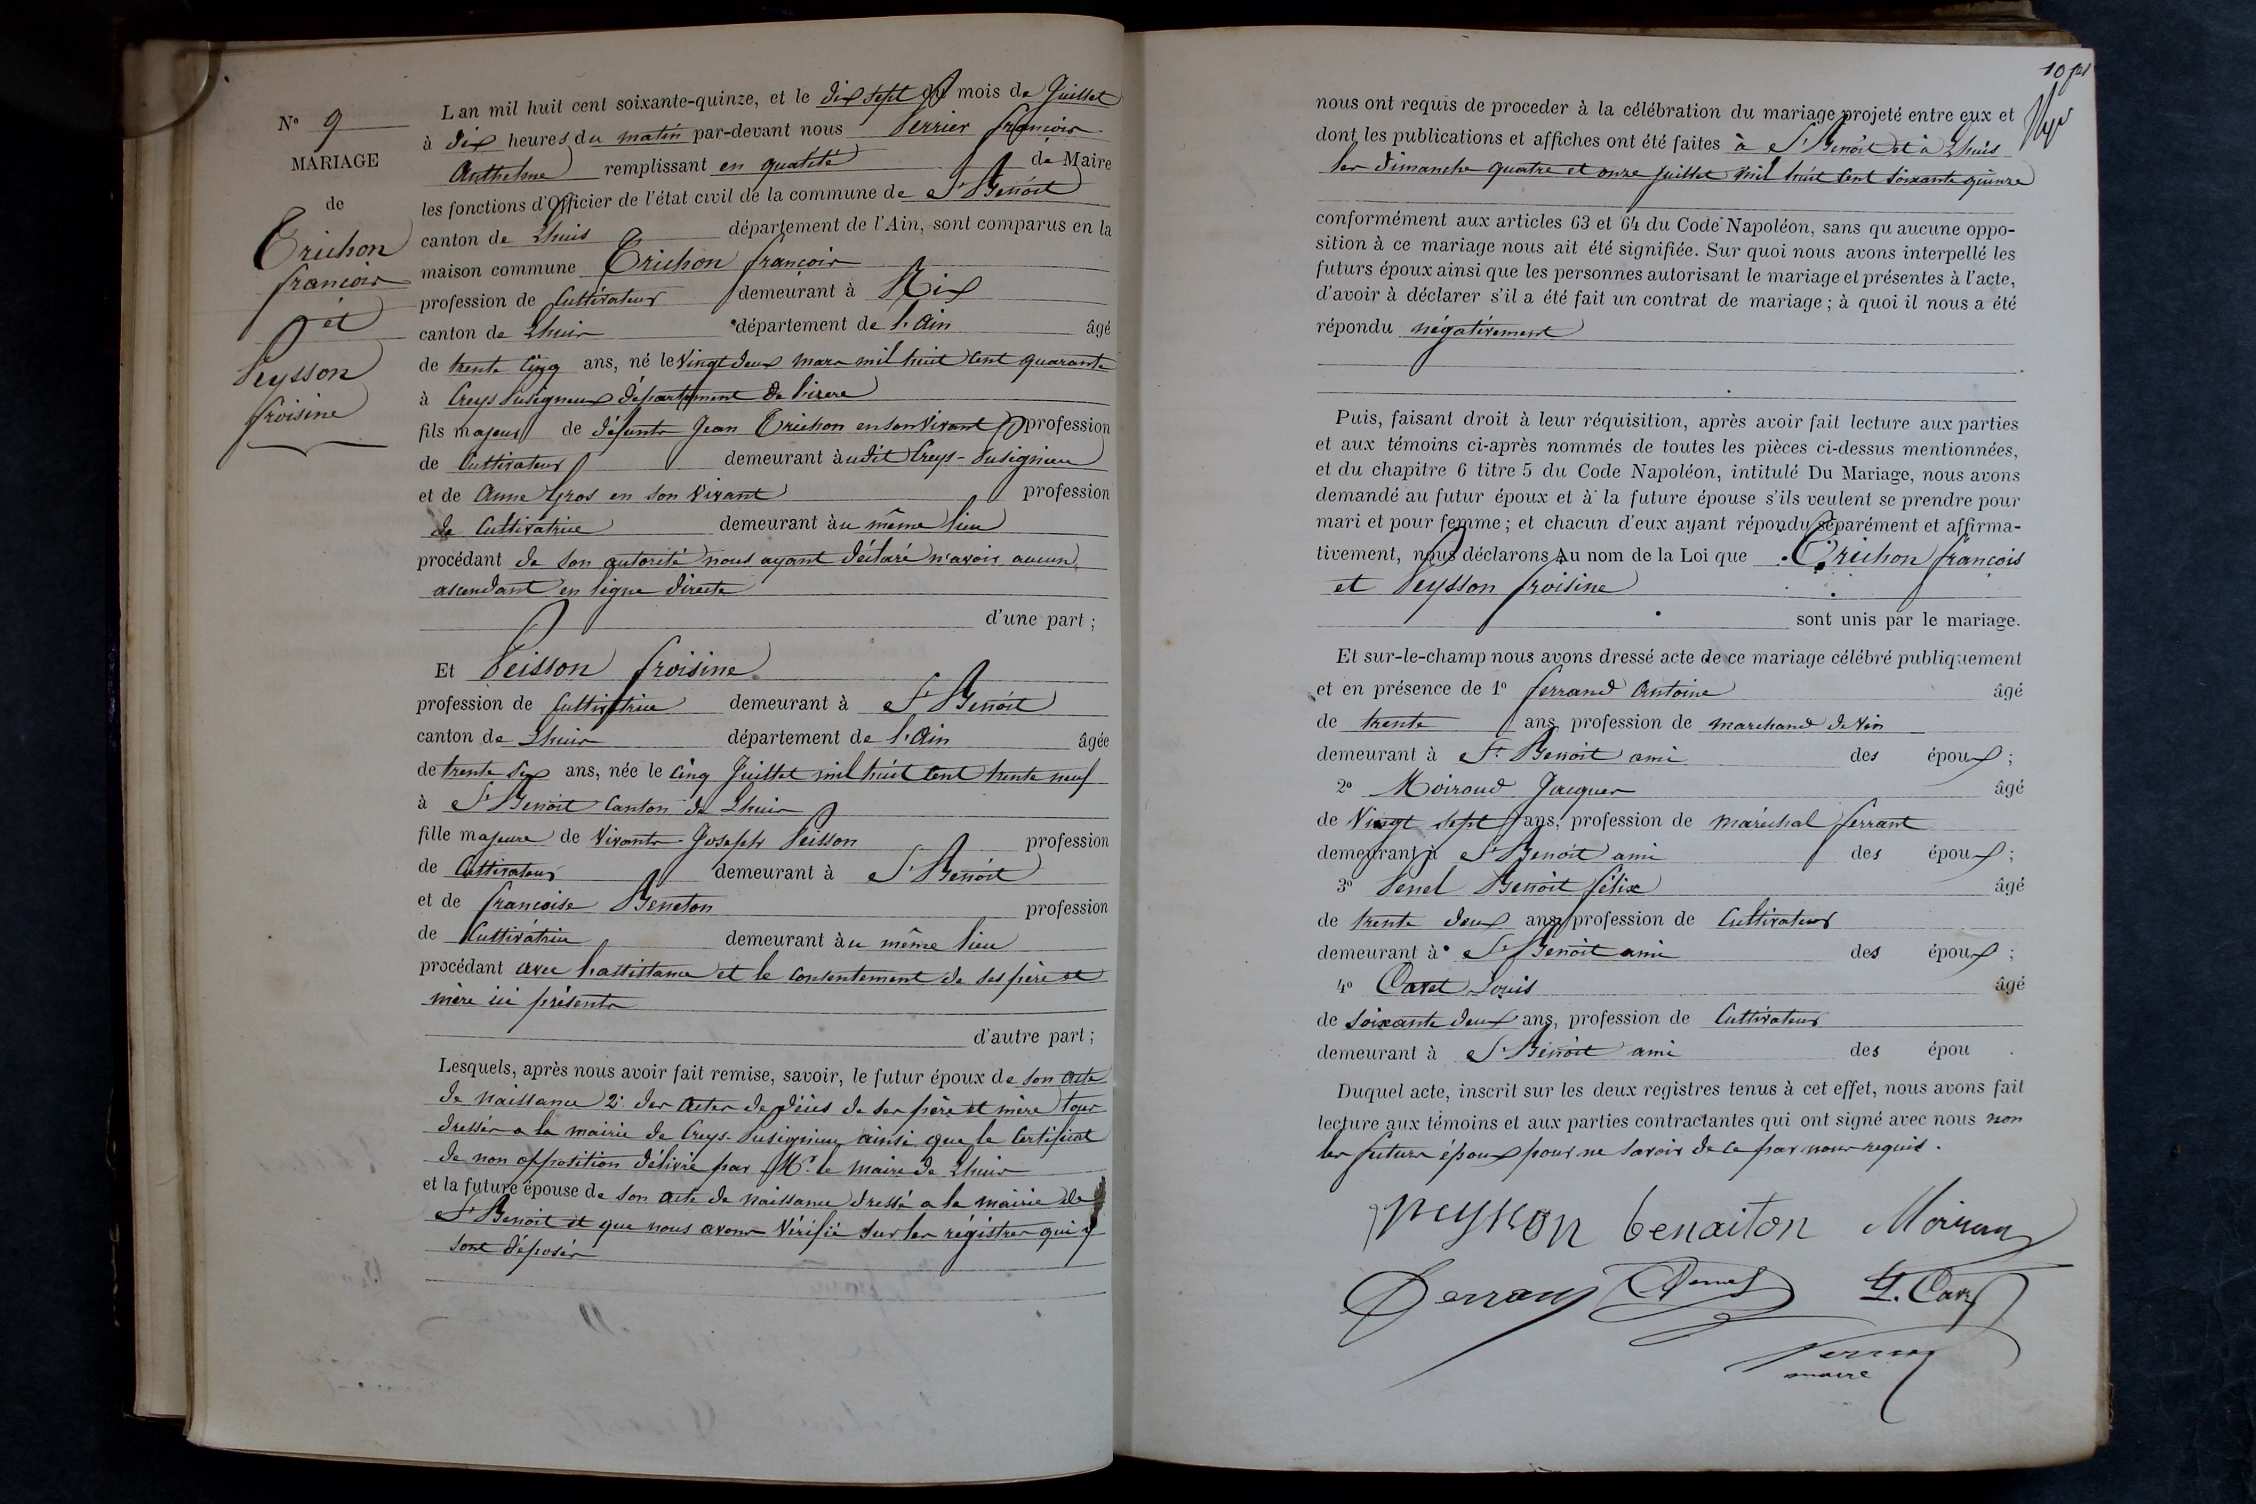 N° 9
MARIAGE
de
Trichon
françois
et
Peysson
froisine
L'an mil huit cent soixante-quinze, et le dix sept du mois de Juillet
à dix heures du matin par-devant nous Perrier françois
Anthelme remplissant en qualité de Maire
les fonctions d'Officier de l'état civil de la commune de St Benoit
canton de Lhuis département de l'Ain, sont comparus en la
maison commune Trichon françois
profession de Cultivateur demeurant à Nix
canton de Lhuis département de l'Ain âgé
de trente cinq ans, né le vingt deux mars mil huit cent quarante
à Creys Pusigneux département de l'isere
fils majeur de défunts Jean Trichon en son vivant profession
de Cultivateur demeurant audit Creys-Pusignieu
et de Anne Gros en son vivant profession
de Cultivatrice demeurant au même lieu
procédant de son autorité nous ayant déclaré n'avoir aucun
ascendant en ligne directe
d'une part ;
Et Peisson froisine
profession de Cultivatrice demeurant à St Benoit
canton de Lhuis département de l'Ain âgée
de trente six ans, née le cinq Juillet mil huit cent trente neuf
à St Benoit Canton de Lhuis
fille majeure de vivants Joseph Peisson profession
de Cultivateur demeurant à St Benoit
et de françoise Beneton profession
de Cultivatrice demeurant au même lieu
procédant avec l'assistance et le consentement de ses père et
mère ici présents
d'autre part ;
Lesquels, après nous avoir fait remise, savoir, le futur époux de son acte
de naissance 2° des actes de décès de ses père et mère tous
dressés a la mairie de Creys-Pusignieu ainsi que le Certificat
de non opposition délivré par Mr le maire de Lhuis
et la future épouse de son acte de naissance dressé a la mairie de
St Benoit et que nous avons vérifié sur les régistres qui y
sont déposés
10
nous ont requis de proceder à la célébration du mariage projeté entre eux et
dont les publications et affiches ont été faites à St Benoit et à Lhuis
les dimanche quatre et onze juillet mil huit cent soixante quinze
conformément aux articles 63 et 64 du Code Napoléon, sans qu'aucune oppo-
sition à ce mariage nous ait été signifiée. Sur quoi nous avons interpellé les
futurs époux ainsi que les personnes autorisant le mariage et présentes à l'acte,
d'avoir à déclarer s'il a été fait un contrat de mariage ; à quoi il nous a été
répondu négativement
Puis, faisant droit à leur réquisition, après avoir fait lecture aux parties
et aux témoins ci-après nommés de toutes les pièces ci-dessus mentionnées,
et du chapitre 6 titre 5 du Code Napoléon, intitulé Du Mariage, nous avons
demandé au futur époux et à la future épouse s'ils veulent se prendre pour
mari et pour femme ; et chacun d'eux ayant répondu séparément et affirma-
tivement, nous déclarons Au nom de la Loi que Trichon françois
et Peysson froisine
sont unis par le mariage.
Et sur-le-champ nous avons dressé acte de ce mariage célébré publiquement
et en présence de 1° ferrand Antoine âgé
de trente ans, profession de marchand de vin
demeurant à St Benoit ami des époux ;
2° Moiroud Jacques âgé
de Vingt sept ans, profession de maréchal ferrant
demeurant à St Benoit ami des époux ;
3° Penel Benoit félix âgé
de trente deux ans, profession de Cultivateur
demeurant à St Benoit ami des époux ;
4° Cavet Louis âgé
de soixante deux ans, profession de Cultivateur
demeurant à St Benoit ami des épou .
Duquel acte, inscrit sur les deux registres tenus à cet effet, nous avons fait
lecture aux témoins et aux parties contractantes qui ont signé avec nous non
les futurs époux pour ne savoir de ce par nous requis.
peysson benaiton
maire